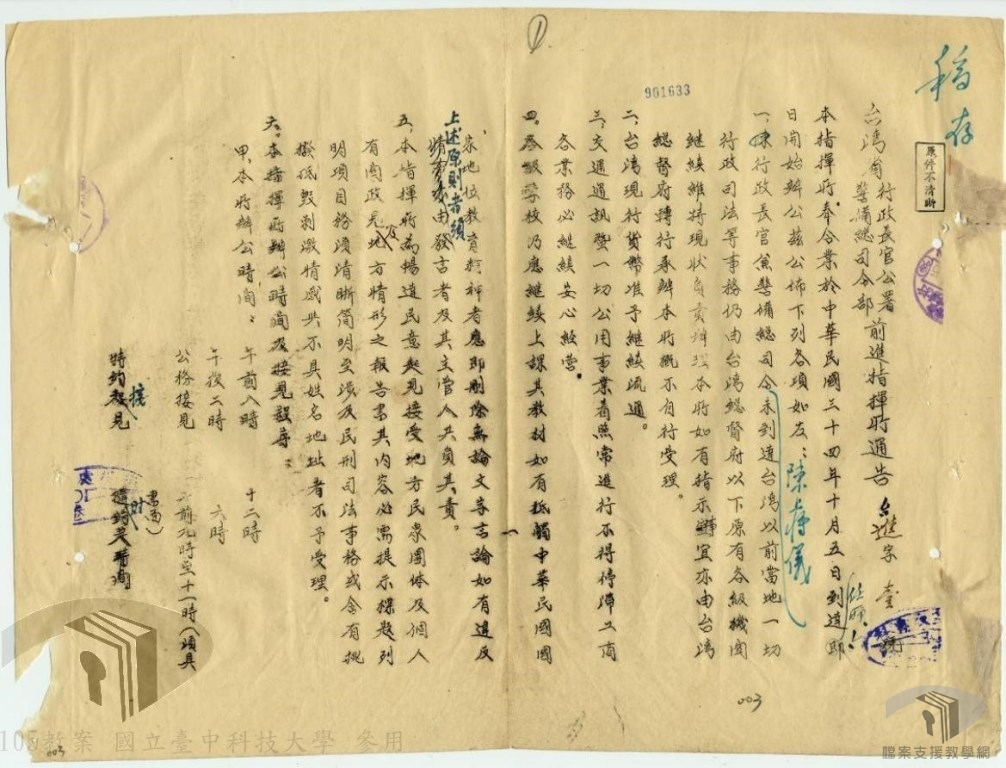 ①
901633
稿存
原件不清晰
台灣省行政長官公署
警備總司令部
前進指揮所通告
台進字
壹
號
本指揮所奉令業於中華民國三十四年十月五日到達即
日開始辦公茲公布下列各項如左：
陳
儀
一、陳行政長官兼警備總司令未到達台灣以前當地一切
行政司法等事務仍由台灣總督府以下原有各級機關
繼續維持現狀負責辦理本所如有指示事宜亦由台灣
總督府轉行承辦本所概不自行受理。
二、台灣現行貨幣准予繼續流通。
三、交通通訊暨一切公用事業着照常進行不得停滯工商
各業務必繼續安心經營。
四、各級學校仍應繼續上課其教材如有抵觸中華民國國
家地位教育精神者應即刪除無論文字言論如有違反
上述原則者須
由發言者及其主管人共負其責。
五、本指揮所為暢達民意起見接受地方民眾團体及個人
有關政見及地方情形之報告書其内容必需提示標題列
明項目務須清晰簡明至涉及民刑司法事務或含有挑
撥詆毁刺激情感與不具姓名地址者不予受理。
六、本指揮所辦公時間及接見
甲、本所辦公時間：
午前八時
十二時
午後二時
六時
公務接見
前九時至十一時（須具
書面）
特約接見
003
003
105教案 國立臺中科技大學 參用
檔案支援教學網